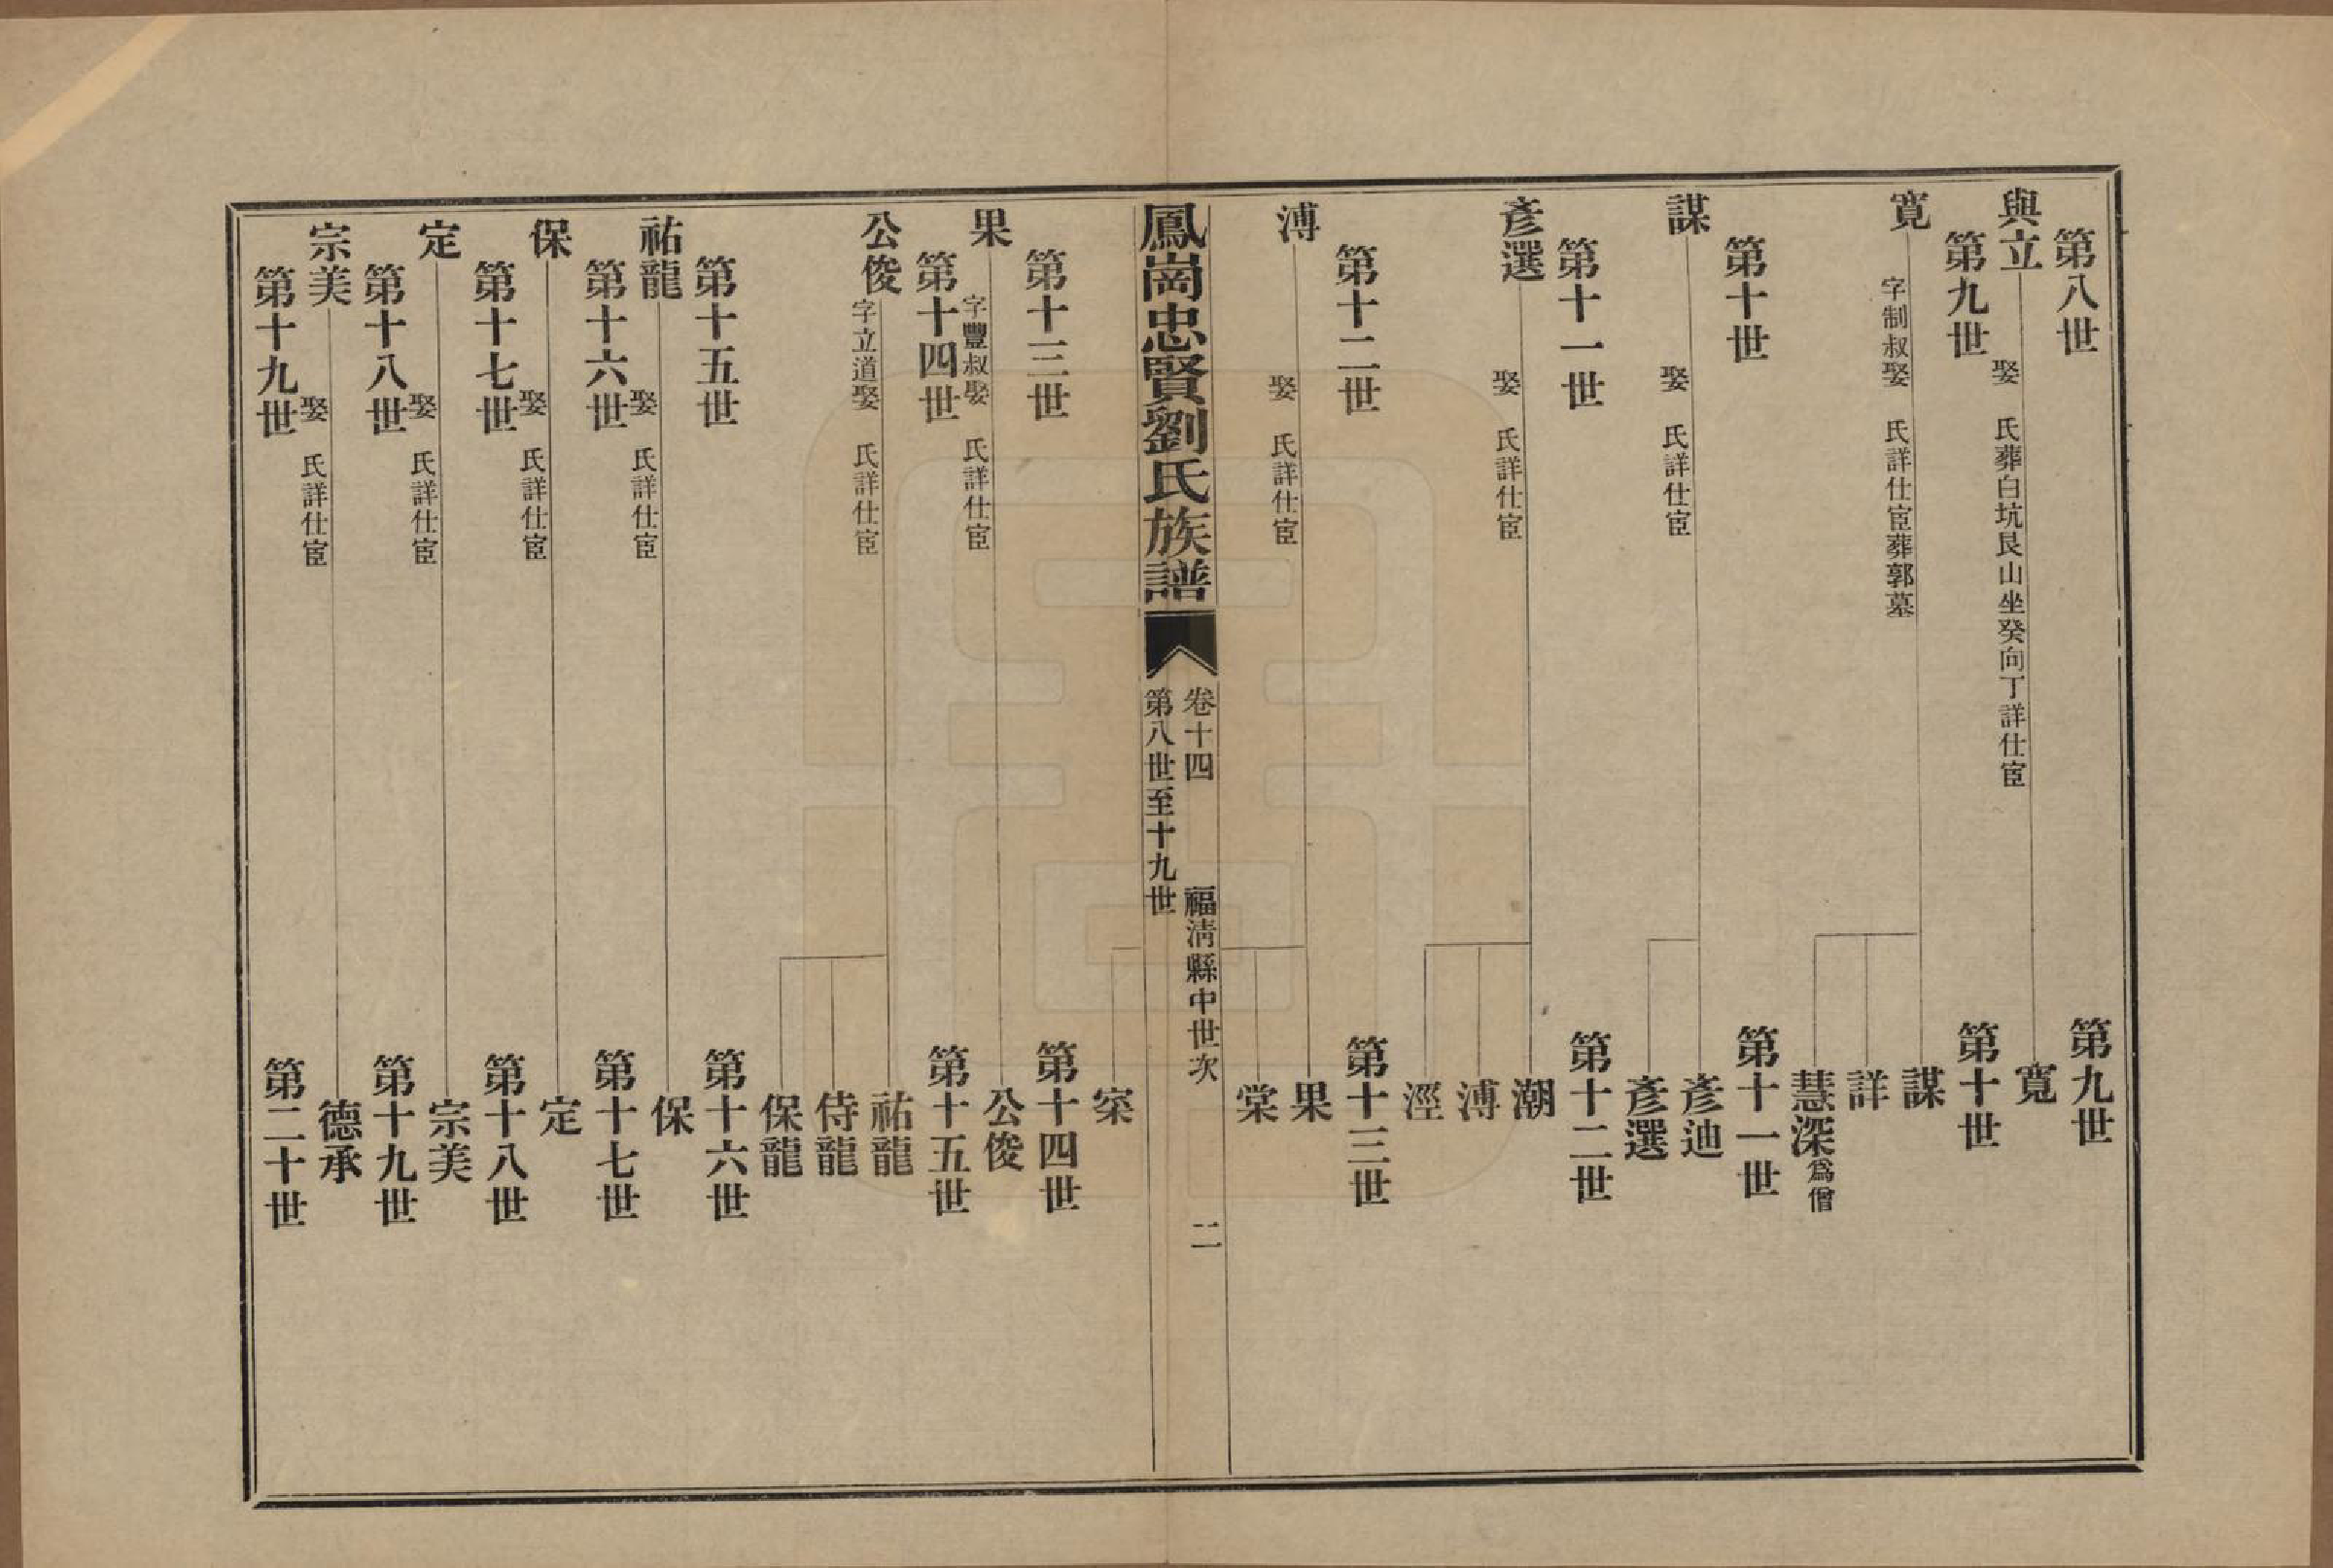 第八世
第九世
與立 娶 氏葬白坑艮山坐癸向丁詳仕宦
寬
第九世
第十世
寬 字制叔娶 氏詳仕宦葬郭墓
謀
詳
慧深為僧
第十世
第十一世
謀 娶 氏詳仕宦
彥迪
彥選
第十一世
第十二世
彥選 娶 氏詳仕宦
潮
溥
涇
第十二世
第十三世
溥 娶 氏詳仕宦
果
棠
鳳崗忠賢劉氏族譜
卷十四 福清縣中世次 二
第八世至十九世
寀
第十三世
第十四世
果 字豐叔娶 氏詳仕宦
公俊
第十四世
第十五世
公俊 字立道娶 氏詳仕宦
祐龍
侍龍
保龍
第十五世
第十六世
祐龍 娶 氏詳仕宦
保
第十六世
第十七世
保 娶 氏詳仕宦
定
第十七世
第十八世
定 娶 氏詳仕宦
宗美
第十八世
第十九世
宗美 娶 氏詳仕宦
德承
第十九世
第二十世